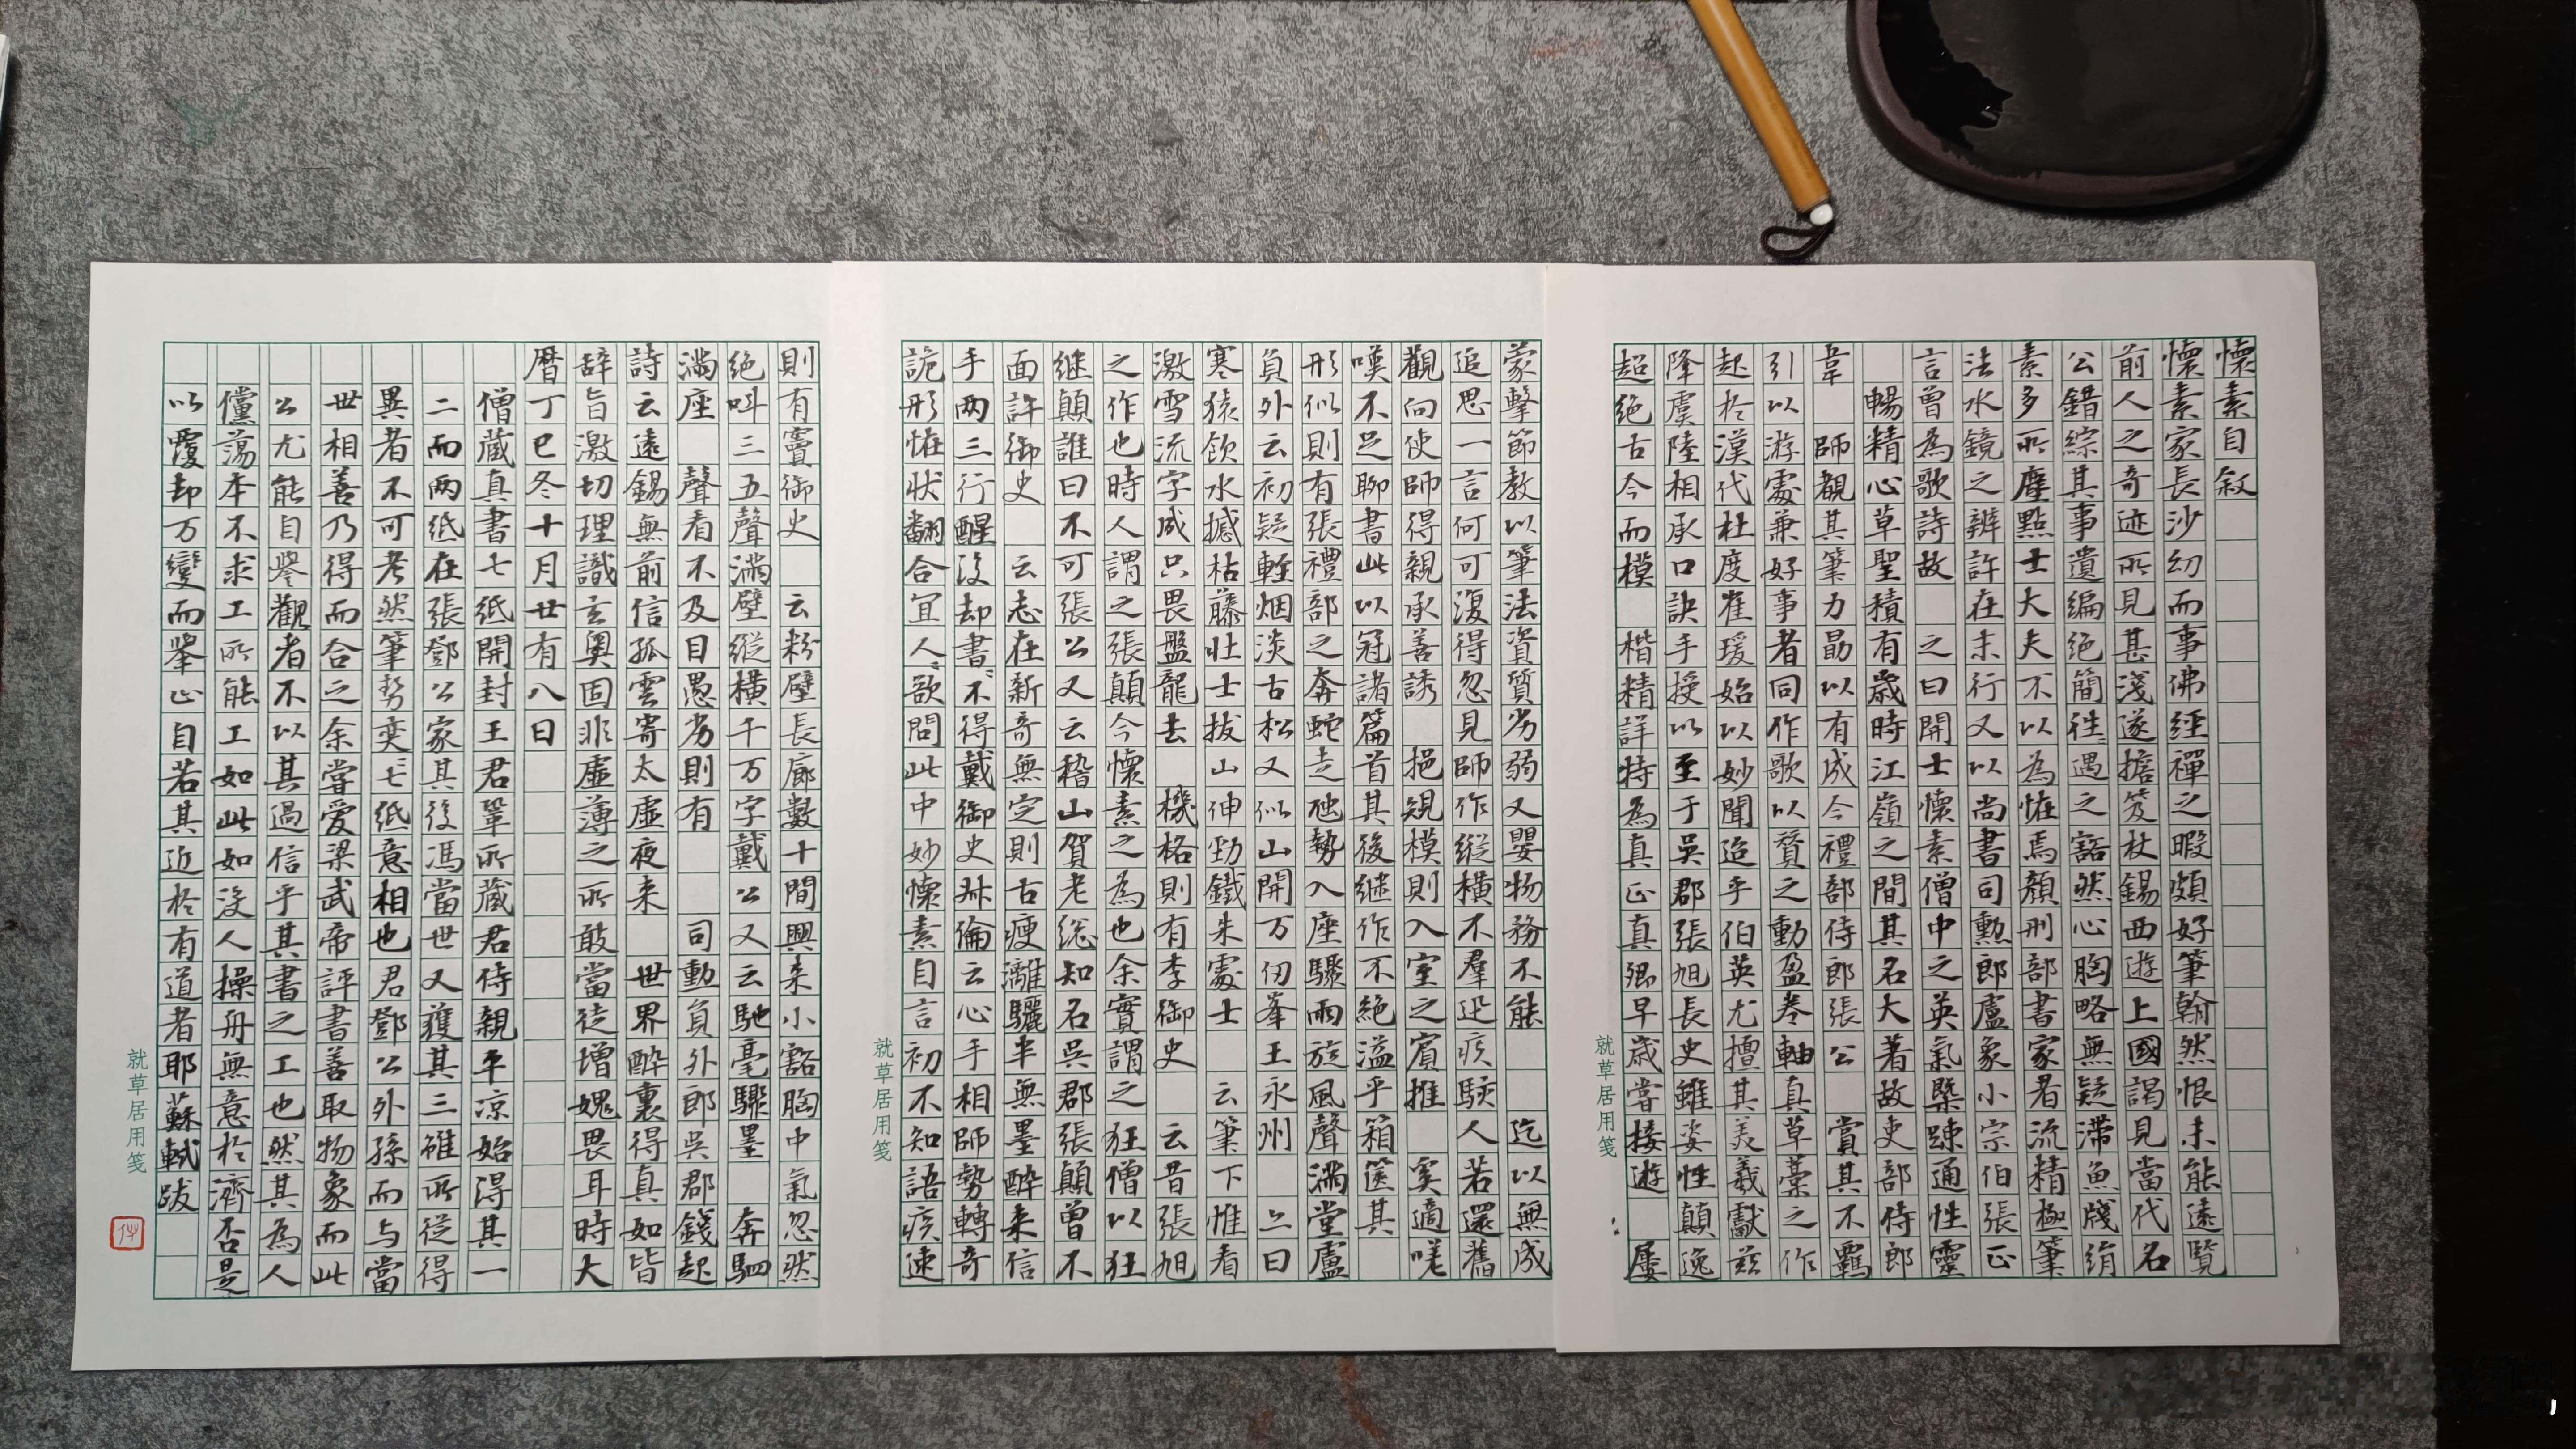 懷素自敘
懷素家長沙幼而事佛經禪之暇頗好筆翰然恨未能遠覽
前人之奇迹所見甚淺遂擔笈杖錫西遊上國謁見當代名
公錯綜其事遺編絕簡往〻遇之豁然心胸略無疑滯魚牋絹
素多所塵點士大夫不以為恠焉顏刑部書家者流精極筆
法水鏡之辨許在末行又以尚書司勳郎盧象小宗伯張正
言曾為歌詩故 之曰開士懷素僧中之英氣槩踈通性靈
暢精心草聖積有歲時江嶺之間其名大著故吏部侍郎
韋 師觀其筆力勗以有成今禮部侍郎張公 賞其不羈
引以游處兼好事者同作歌以贊之動盈卷軸真草藁之作
起於漢代杜度崔瑗始以妙聞迨乎伯英尤擅其美羲獻茲
降虞陸相承口訣手授以至于吳郡張旭長史雖姿性顛逸
超絕古今而模 楷精詳特為真正真卿早歲嘗接遊 屢
就草居用笺
蒙擊節教以筆法資質劣弱又嬰物務不能 迄以無成
追思一言何可復得忽見師作縱橫不羣迅疾駭 人若還舊
觀向使師得親承善誘 挹規模則入室之賓推 奚適嗟
嘆不足聊書此以冠諸篇首其後继作不絕溢乎箱篋其
形似則有張禮部之奔蛇走虺勢入座驟雨旋風聲滿堂盧
負外云初疑輕烟淡古松又似山開万仞峯王永州 曰
寒猿飲水撼枯藤壯士拔山伸勁鐵朱處士 云筆下惟看
激雪流字成只畏盤龍去 機格則有李御史 云昔張旭
之作也時人謂之張顛今懷素之為也余實謂之狂僧以狂
继顛誰曰不可張公又云稽山賀老総知名吳郡張顛曾不
面許御史 云志在新奇無定則古瘦漓驪半無墨醉来信
手两三行醒後却書〻不得戴御史叔倫云心手相師勢轉奇
詭形恠狀翻合宜人〻欲問此中妙懷素自言初不知語疾速
就草居用笺
則有竇御史 云粉壁長廊數十間興来小豁胸中氣忽然
絕叫三五聲滿壁縱橫千万字戴公又云馳毫驟墨 奔駟
滿座 聲看不及目愚劣則有 司勳負外郎吳郡錢起
詩云遠錫無前信孤雲寄太虛夜来 世界醉裏得真如皆
辞旨激切理識玄奧固非虛薄之所敢當徒增媿畏耳時大
曆丁巳冬十月廿有八日
僧藏真書七紙開封王君鞏所藏君侍親平凉始得其一
二而两紙在張鄧公家其後馮當世又獲其三雖所從得
異者不可考然筆勢奕〻七紙意相也君鄧公外孫而与當
世相善乃得而合之余嘗愛梁武帝評書善取物象而此
公尤能自譽觀者不以其過信乎其書之工也然其為人
儻蕩本不求工所能工如此如沒人操舟無意於濟否是
以覆却万變而舉止自若其近於有道者耶蘇軾跋
就草居用笺